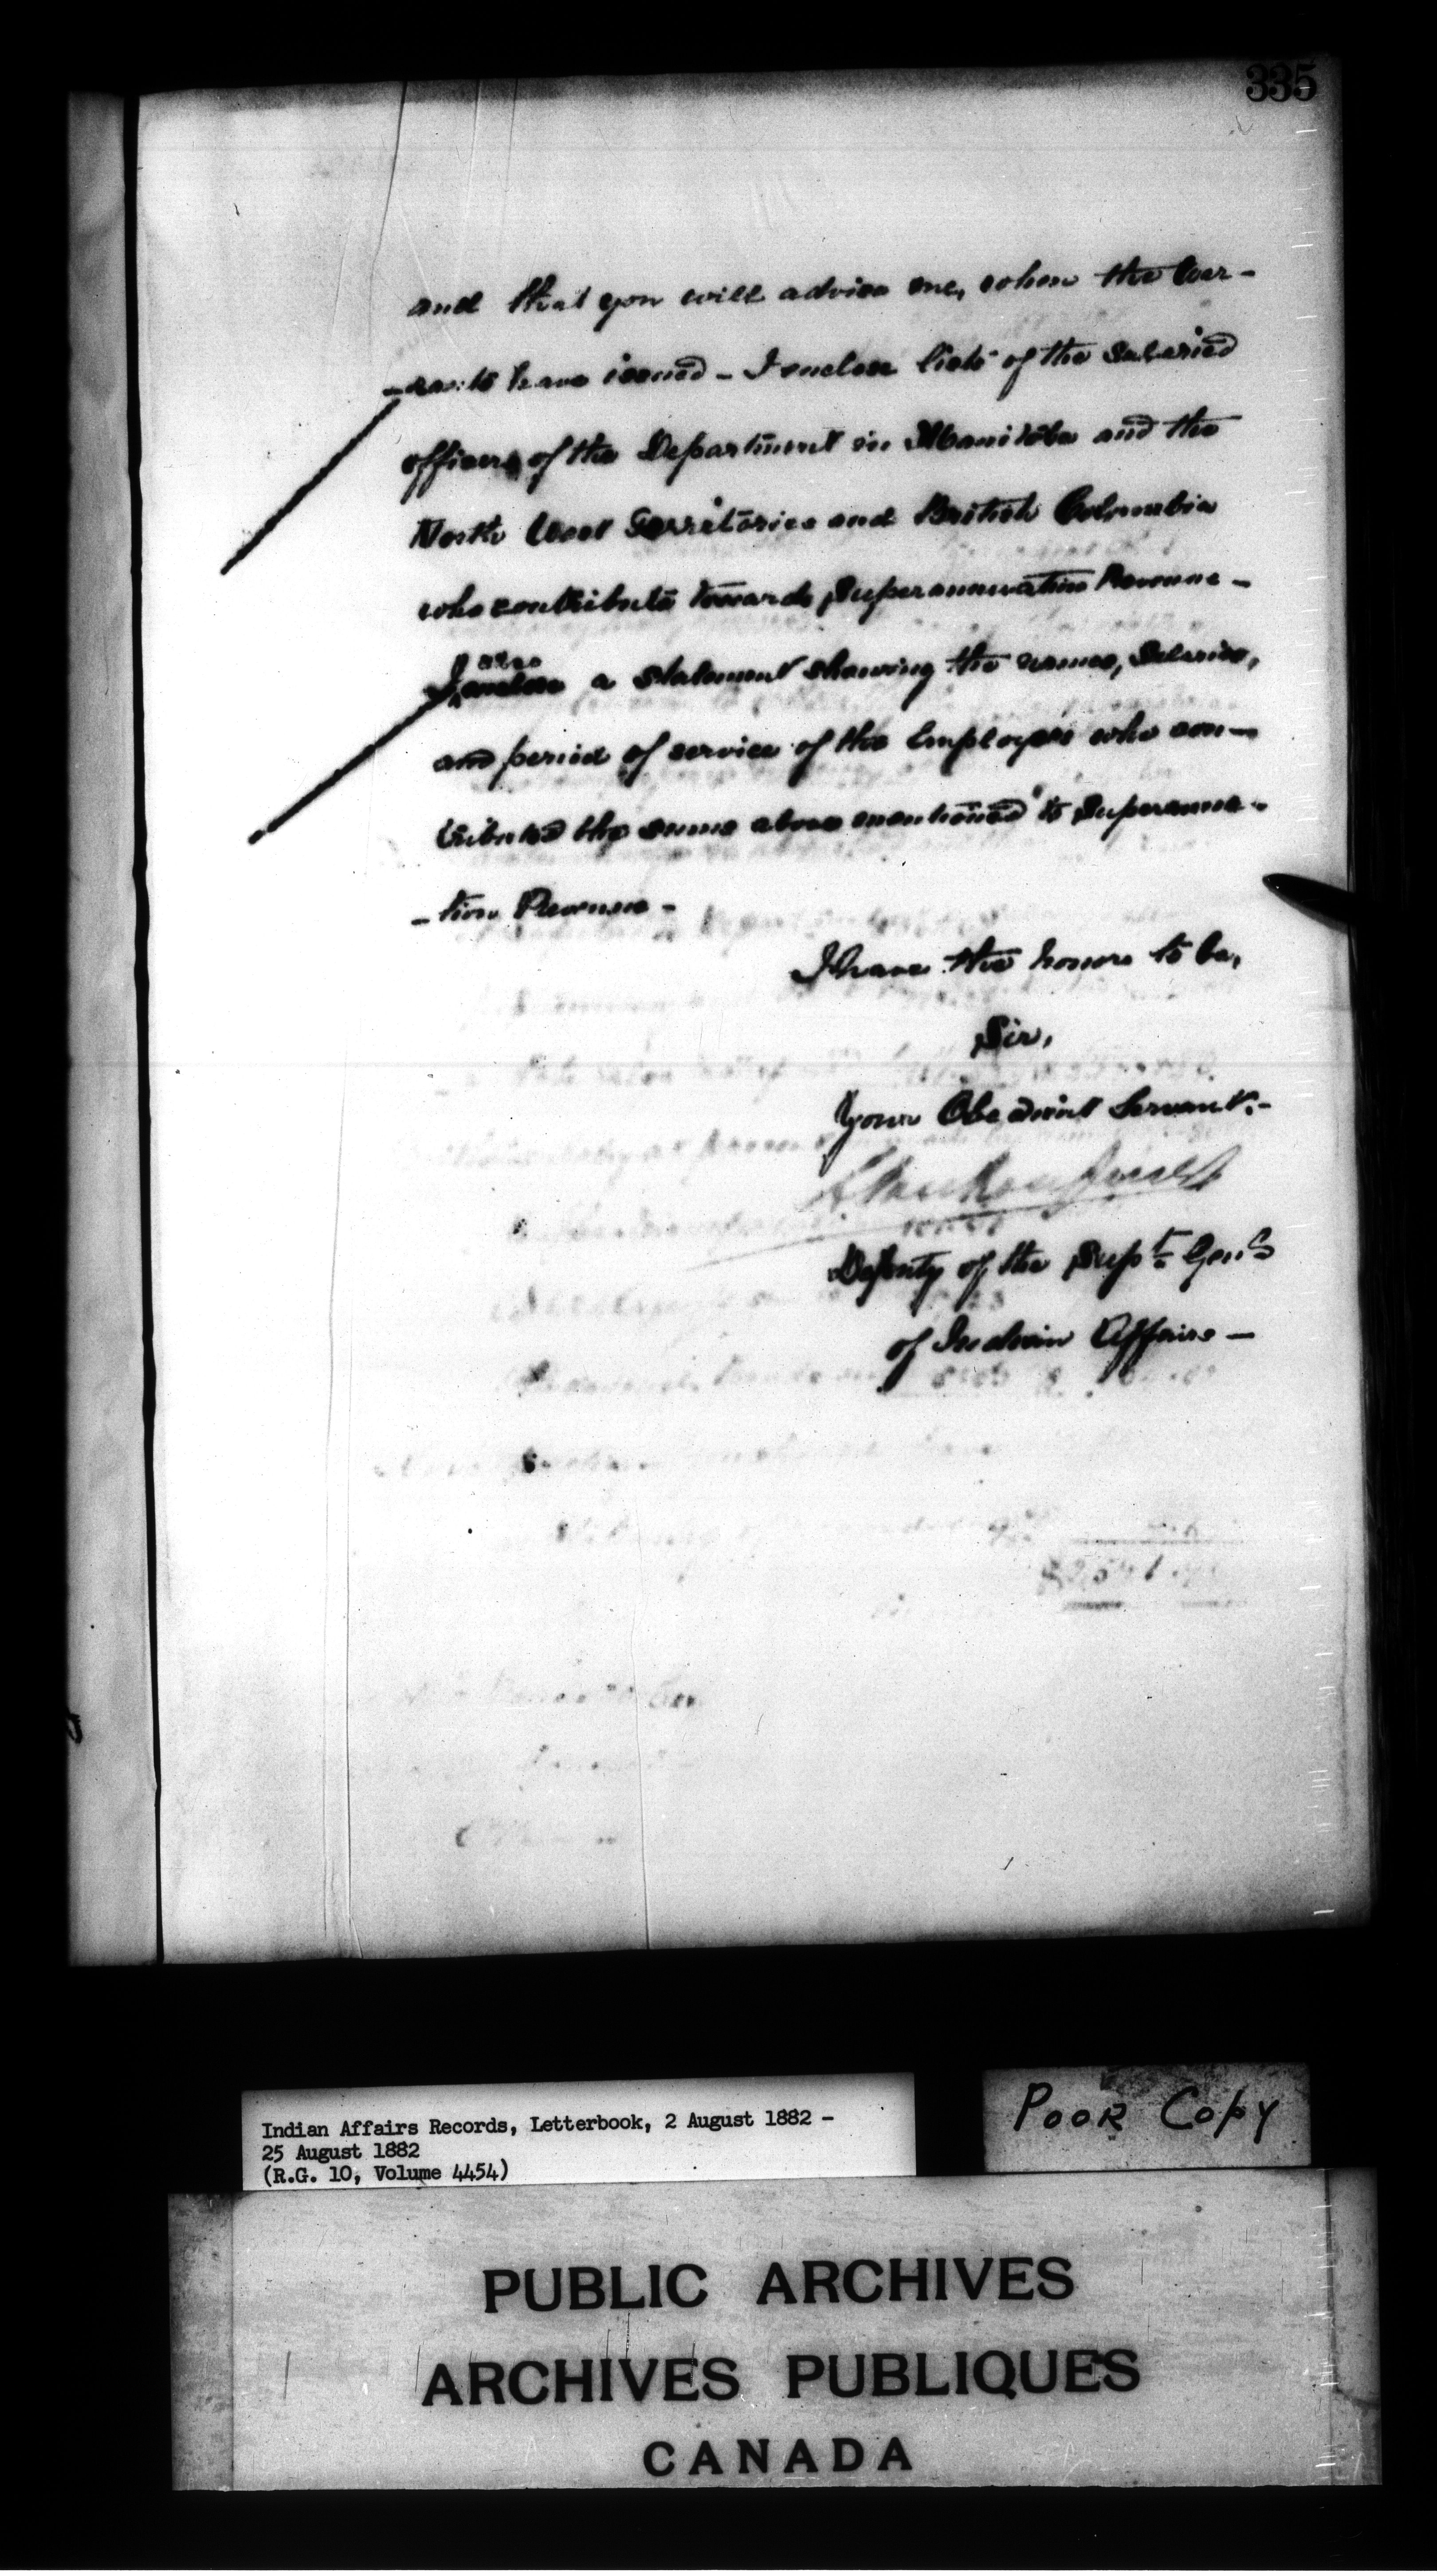 335
and that you will advise me, when the War-
-rants have issued - I enclose lists of the Salaried
officers of the Department in Manitoba and the
North West Territories and British Columbia
who contribute towards Superannuation Revenue -
also
I enclose a statement showing the names, Salaries,
and period of service of the Employés who con-
tributed the sums above mentioned to Superannua-
-tion Revenue -
I have the honor to be,
Sir,
Your Obedient Servant.-
Deputy of the Supt. Genl
of Indian Affairs -
Indian Affairs Records, Letterbook, 2 August 1882 -
25 August 1882
(R.G. 10, Volume 4454)
POOR COPY
PUBLIC ARCHIVES
ARCHIVES PUBLIQUES
CANADA